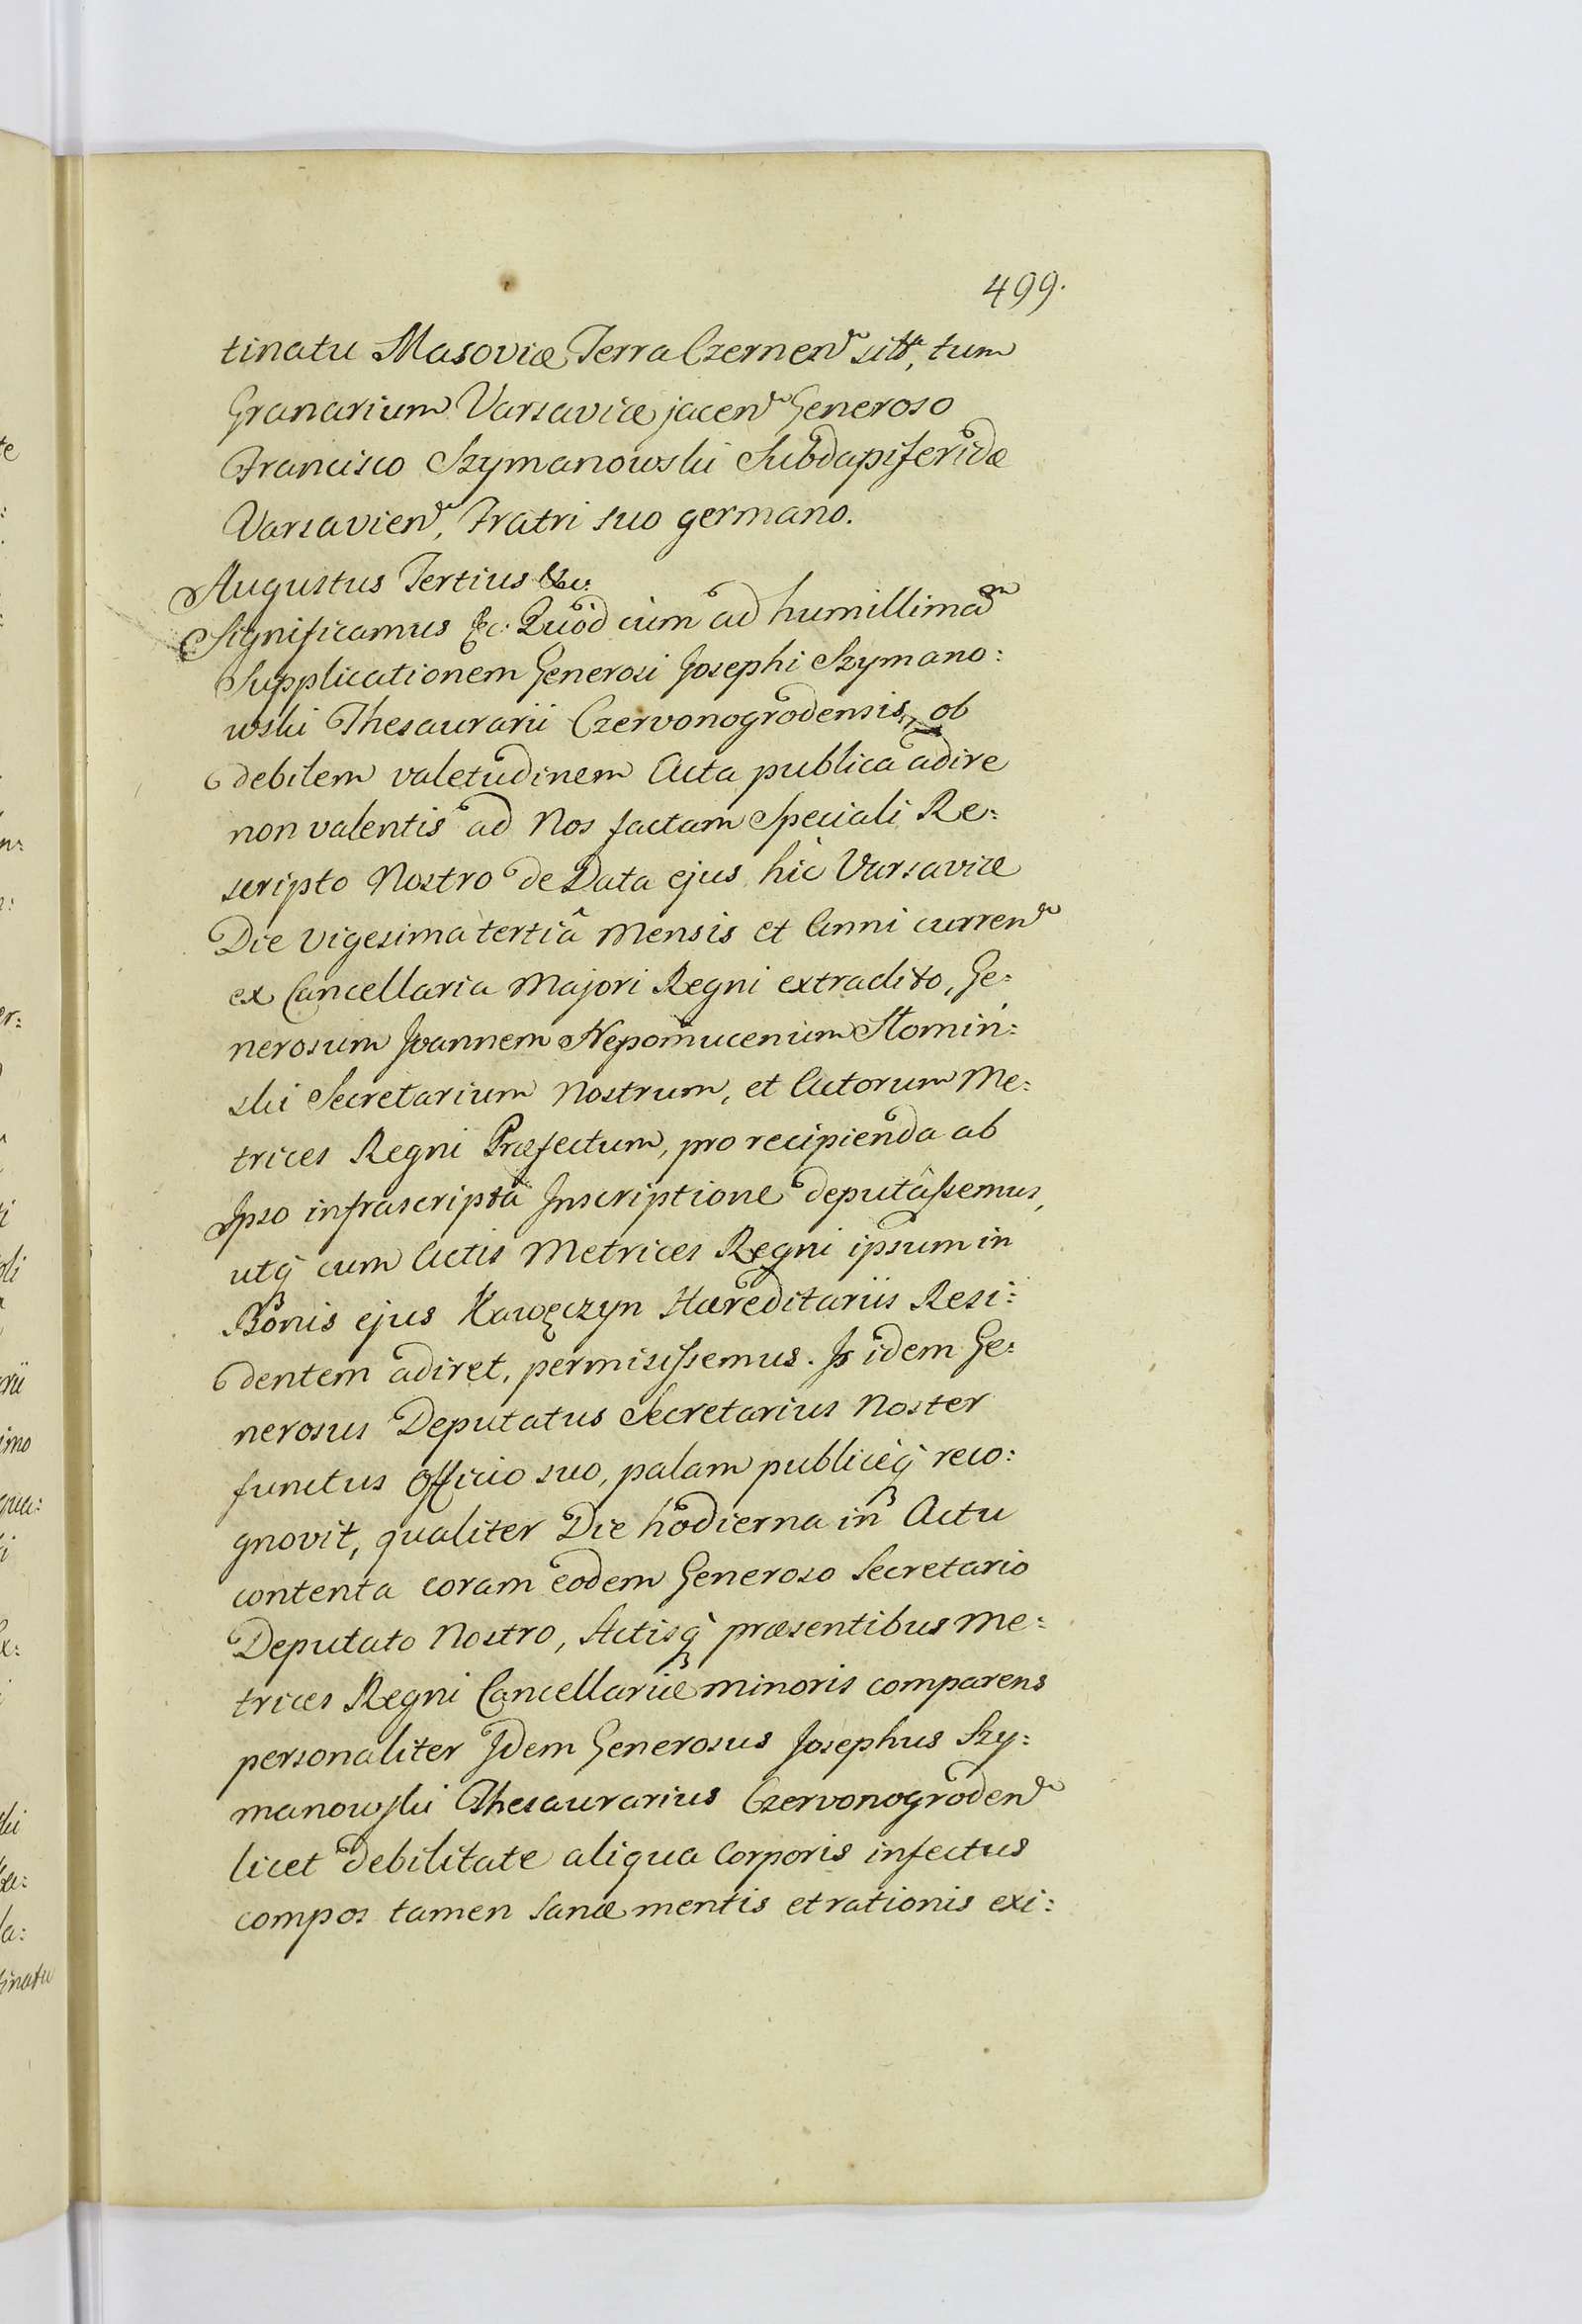 499.
tinatu Masoviæ, Terra Czernen sitt, tum
Granarium Varsaviæ jacen Generoso
Francisco Szymanowski Subdapiferidæ
Varsavien, Fratri suo germano.
Augustus Tertius &c:
Significamus &c. Quòd cùm ad humillimam
Supplicationem Generosi Josephi Szymano:
wski Thesaurarii Czervonogrodensis, ob
debilem valetudinem Acta publica adire
non valentis ad Nos factam Speciali Re:
scripto Nostro de Data ejus hìc Varsaviæ
Die vigesima tertiâ Mensis et Anni curren
ex Cancellaria Majori Regni extradito, Ge:
nerosum Joannem Nepomucenum Słomiń:
ski Secretarium Nostrum, et Actorum Me:
trices Regni Præfectum, pro recipienda ab
Ipso infrascriptâ Inscriptione deputâssemus,
utq̀ cum Actis Metrices Regni ipsum in
Bonis ejus Kawęczyn Hæreditariis Resi:
dentem adiret, permisissemus. Is idem Ge:
nerosus Deputatus Secretarius Noster
functus Officio suo, palam publicèq̀ reco:
gnovit, qualiter Die hodierna in Actu
contenta coram eodem Generoso Secretario
Deputato Nostro, Actisq̀ præsentibus Me:
trices Regni Cancellariæ minoris comparens
personaliter Idem Generosus Josephus Szy:
manowski Thesaurarius Czervonogroden
licet debilitate aliqua Corporis infectus
compos tamen sanæ mentis et rationis exi: